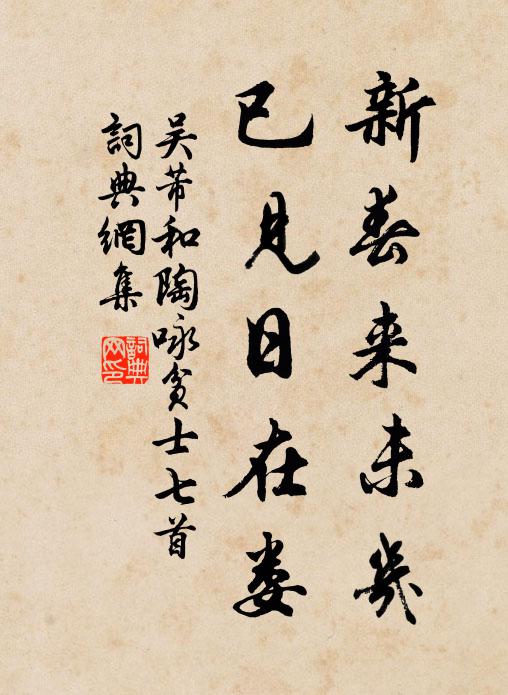 新春来未幾
已見日在娄
吴芾和陶咏贫士七首
詞典網集
詞典網印